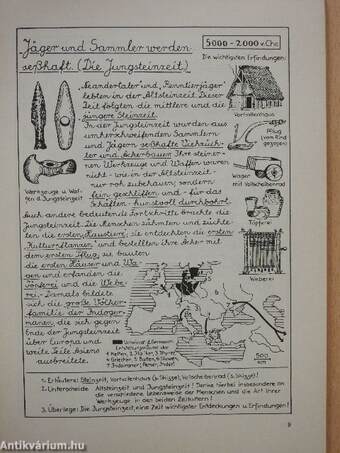 Jäger und Sammler werden
seßhaft. (Die Jungsteinzeit)
5000 - 2.000 v.Chr.
Die wichtigsten Erfindungen:
Neandertaler und "Renntierjäger
lebten in der Altsteinzeit. Dieser
Zeit folgten die mittlere und die
jüngere Steinzeit.
In der Jungsteinzeit wurden aus
umherschweifenden Sammlern
und Jägern seßhafte Viehzüch-
ter und Ackerbauer. Ihre steiner-
nen Werkzeuge und Waffen waren
nicht - wie in der Altsteinzeit -
nur roh zubehauen, sondern
fein geschliffen und - für das
Schäften - kunstvoll durchbohrt.
Werkzeuge u. Waf-
fen d. Jungsteinzeit
Vorhallenhaus
Pflug
(vom Rind
gezogen)
Wagen
mit Vollscheibenrad
Töpferei
Weberei
Auch andere bedeutende Fortschritte brachte die
Jungsteinzeit: Die Menschen zähmten und züchte-
ten die ersten Haustiere; sie entdeckten die ersten
Kulturpflanzen und bestellten ihre Äcker mit
dem ersten Pflug; sie bauten
die ersten Häuser und Wa-
gen und erfanden die
Töpferei und die Webe-
rei. Damals bildete
sich die große Völker-
familie der Indoger-
manen, die sich gegen
Ende der Jungsteinzeit
über Europa und
weite Teile Asiens
ausbreitete.
500
km
1. Erläutere: Steingerät, Vorhallenhaus (s. Skizze), Vollscheibenrad (s. Skizze)!
2. Unterscheide Altsteinzeit und Jungsteinzeit! Denke hierbei insbesondere an
die verschiedene Lebensweise der Menschen und die Art ihrer
Werkzeuge in den beiden Zeitaltern!
3. Überlege: Die Jungsteinzeit eine Zeit wichtigster Entdeckungen u. Erfindungen!
9
antikvárium.hu